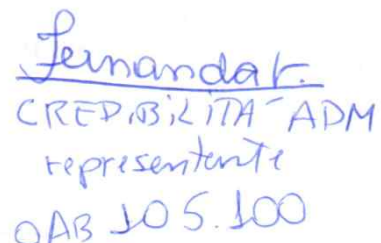 Fernanda F.
CREDIBILITÀ ADM
representante
OAB 105.100